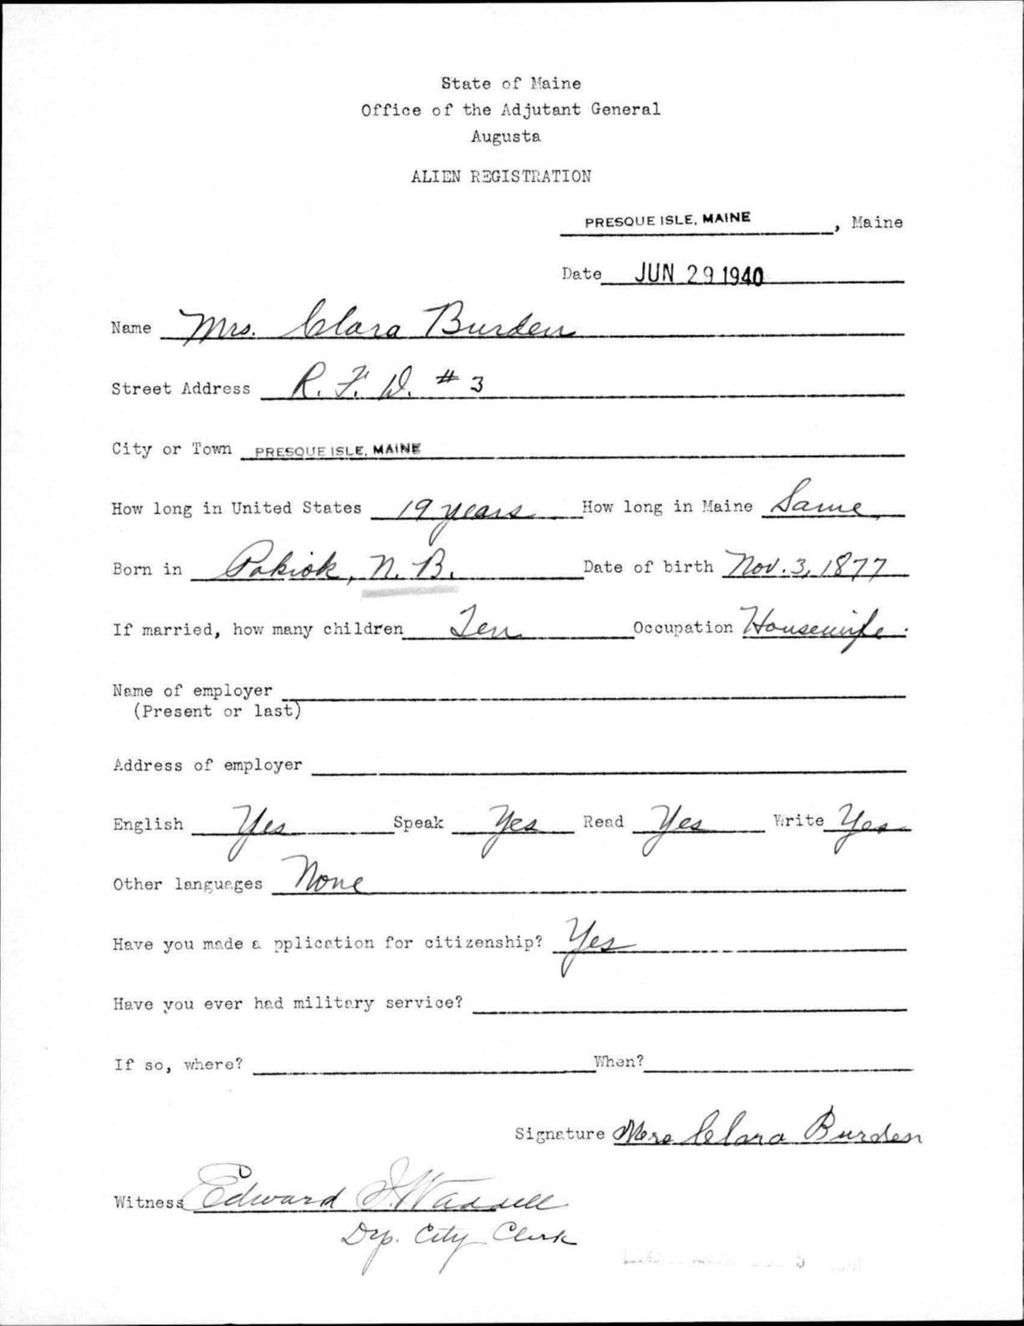 State of Maine
Office of the Adjutant General
Augusta
ALIEN REGISTRATION
PRESQUE ISLE, MAINE, Maine
Date JUN 29 1940
Name Mrs. Clara Burden
Street Address R. F. D. # 3
City or Town PRESQUE ISLE, MAINE
How long in United States 19 years How long in Maine Same
Born in Pokiok, N. B. Date of birth Nov. 3, 1877
If married, how many children Ten Occupation Housewife.
Name of employer
(Present or last)
Address of employer
English Yes Speak Yes Read Yes Write Yes
Other languages None
Have you made a pplication for citizenship? Yes
Have you ever had military service?
If so, where? When?
Signature Mrs Clara Burden
Witness Edward
Dep. City Clerk